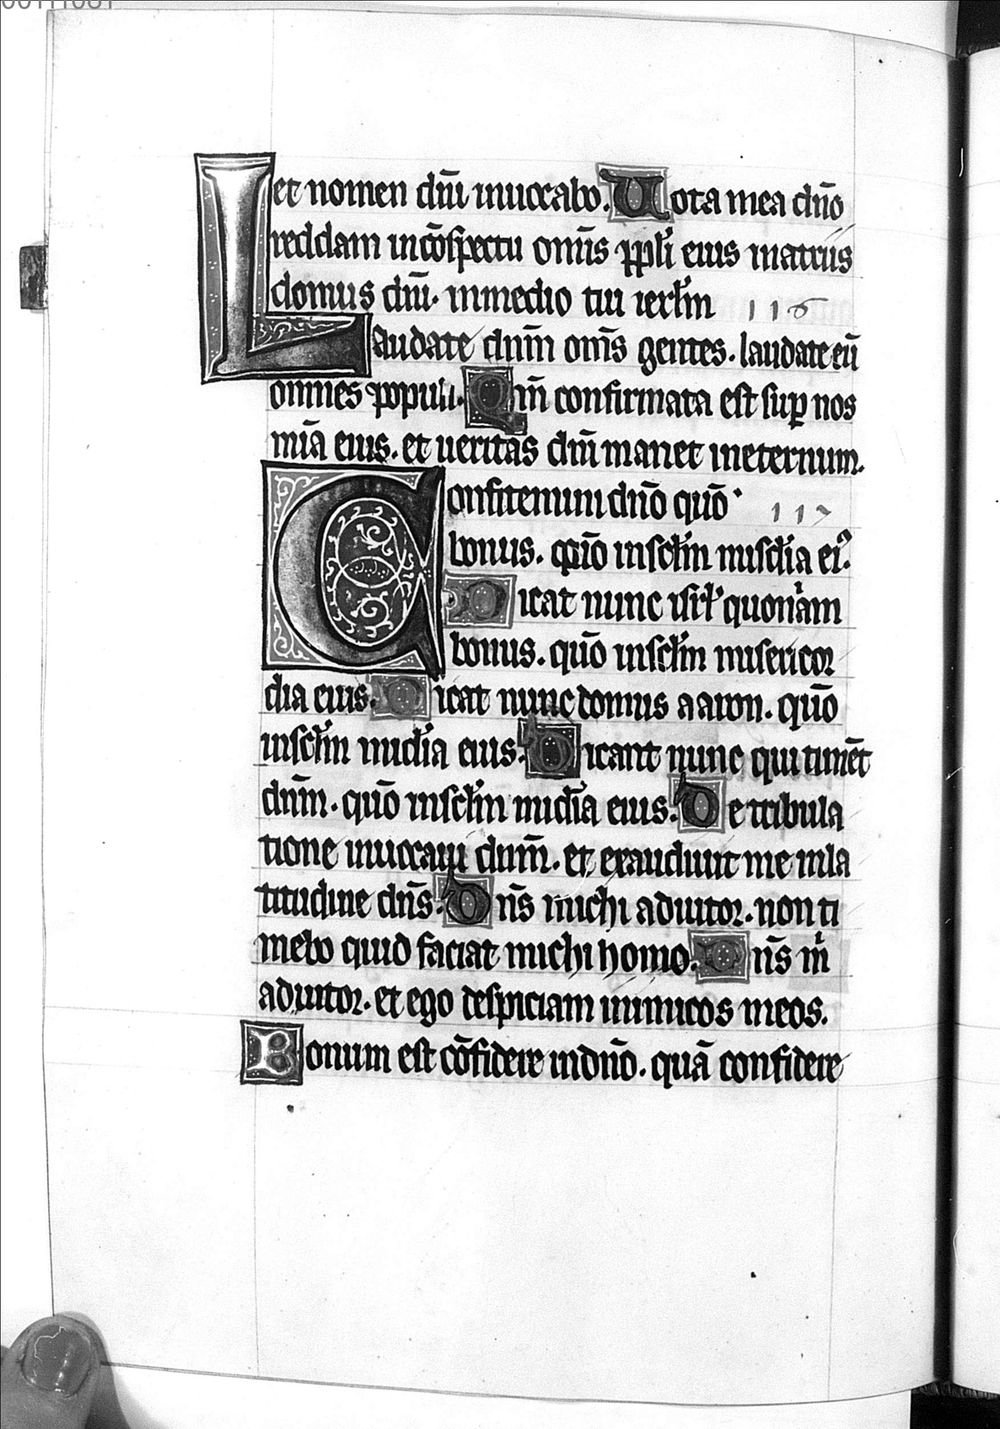 et nomen dnī inuocabo. Uota mea dnō
reddam incōspectu omīs ppl̄i eius inatriis
domus dnī. inmedio tui ierl̄m 116
Laudate dnm̄ omīs gentes. laudate eū
omnes populi. Qm̄ confirmata est sup nos
mīa eius. et ueritas dnī manet ineternum.
Confitemini dnō quō 117
bonus. quō insecl̄m misedīa ei9.
Dicat nunc isrl̄ quoniam
bonus. quō insecl̄m misericor
dia eius. Dicat nunc domus aaron. quō
insecl̄m midīa eius. Dicant nunc qui timēt
dnm̄. quō insecl̄m midīa eius. De tribula
tione inuocaui dnm̄. et exaudiuit me inla
titudine dns̄. Dns̄ michi adiutor. non ti
mebo quid faciat michi homo. Dns̄ m̄
adiutor. et ego despiciam inimicos meos.
Bonum est cōfidere indnō. quā confidere